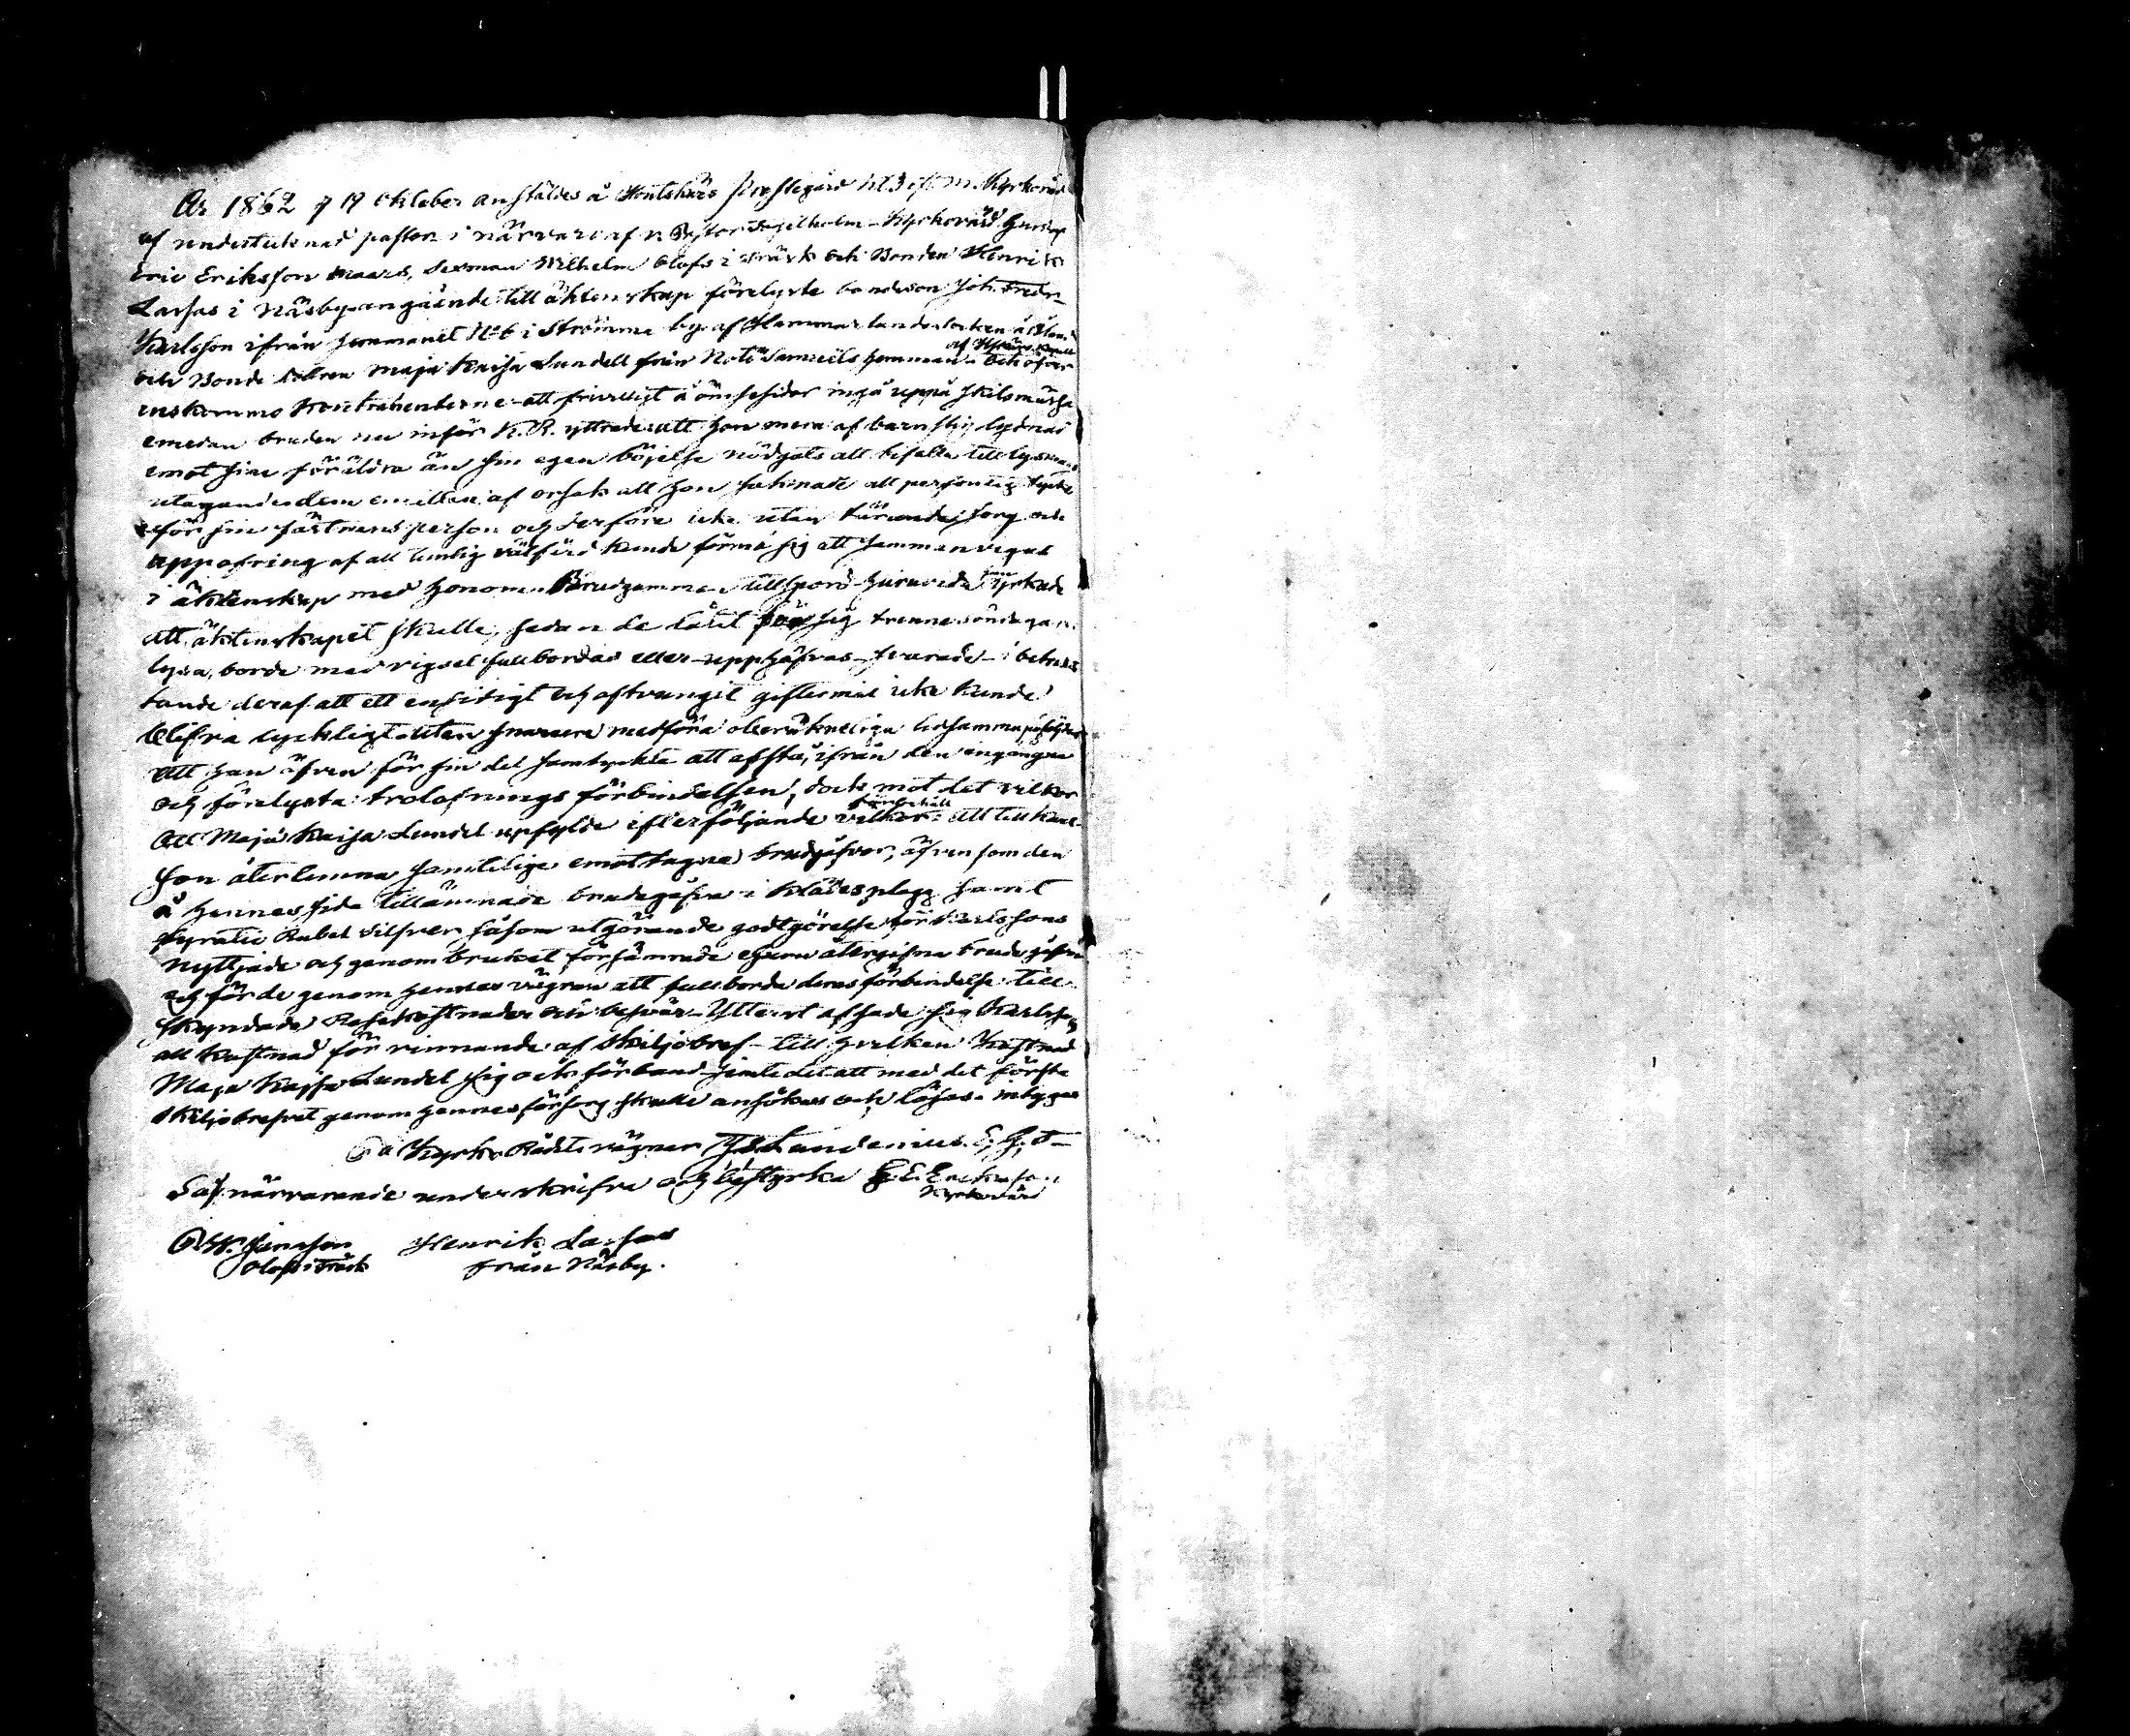 År 1862 d 19 October anstäldes å Houtskärs prestegård kl 3 e. m. Kyrkoråd
af undertecknad pastor i närvaro af v. Pastor Kyrkovärd
Eric Eriksson Maars, Sexman Wilhelm Olofs i Träsk och Bonden Henrik
Larsas i Näsby angående till äktenskap förelyste bondeson Joh. Fredr.
Karlsson ifrån hemmanet No 6 i Strömma by af Hammarlands socken å Åland
och Bonde dottren Maja Kaisa Lundell från Nötö Samuels hemman och öfver
enskommo Kontrahenterne att frivilligt å ömse sidor ingå uppå skilsmässa
emedan bruden nu inför K. R. yttrade att hon mera af barnslig lydnad
emot sine föräldra än sin egen böjelse nödgats att bifalla till lysnings
utagande dem emillan af orsak att hon saknade all personlig tycke
för sin fästmans person och derföre icke utan tärande sorg och
uppofring af all timlig välfärd kunde förmå sig att sammanvigas
i äktenskap med honom. Brudgummen tillspord huruvida yrkade
att äktenskapet skulle, sedan de låtit för sig trenne söndagar
lysa, borde med vigsel fullbordas eller upphäfvas svarade i betrak
tande deraf att ett ensidigt och aftvunget giftermål icke kunde
blifva lyckligt utan snarare medföra oberäkneliga ledsamma påföljder
att han äfven för sin del samtyckte att afstå ifrån den ingångna
och förelysta trolofnings förbindelsen, dock mot det vilkor
förbehåll
att Maja Kaisa Lundel upfylde efterföljande vilkor: att till Karls
son återlemna samtelige emottagne brudgåfvor, äfven som den
å hennes sida tillämnade brudegåfva i klädesplagg samt
fyratio Rubel Silfver såsom utgörande godtgörelse för Karlssons
nyttjade och genom bruket försämrade egna återgifna brudegåfva
och för de genom hennes vägran att fullborda deras förbindelse till
skyndade Resekostnader och besvär. Ytterst afsade sig Karlsson
all kostnad för vinnande af skiljobref till hvilken kostnad
Maja Kajsa Lundel sig ock förband jemte det att med det första
skiljobrefvet genom hennes försorg skulle ansökas och lösas. intygas
På Kyrko Rådets vägnar Lundenius.
Såsom närvarande underskrifva och bestyrka E. E. Erickson
Kyrkovärd
W. Jansson Henrik Larsas
Olofs i Träsk från Näsby.